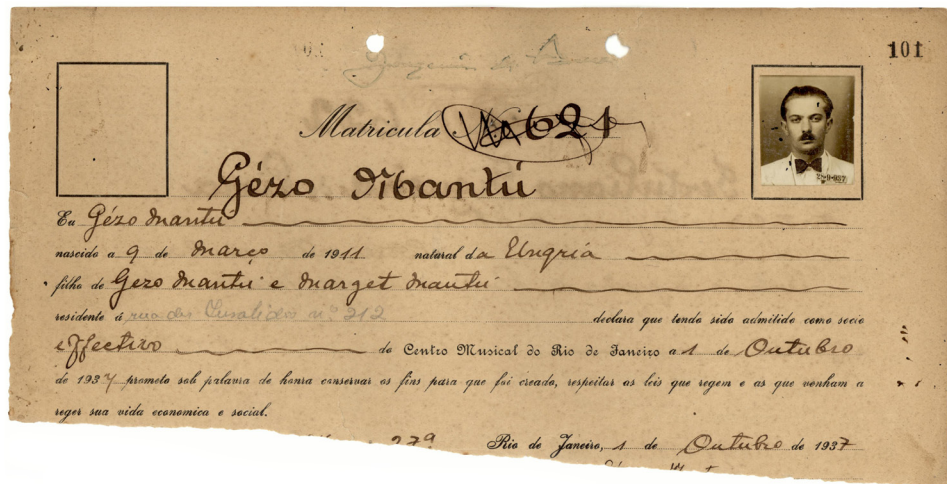 101
Matricula 621
Gézo Mantú
29-9-937
Eu Gézo Mantú
nascido a 9 de Março de 1911 natural da Ungria
filho de Gezo Mantú e Marget Mantú
residente á rua dos Invalidos nº 212 declara que tendo sido admittido como socio
effectivo do Centro Musical do Rio de Janeiro a 1 de Outubro
de 1937 prometo sob palavra de honra conservar os fins para que foi creado, respeitar as leis que regem e as que venham a
reger sua vida economica e social.
27ª Rio de Janeiro, 1 de Outubro de 1937